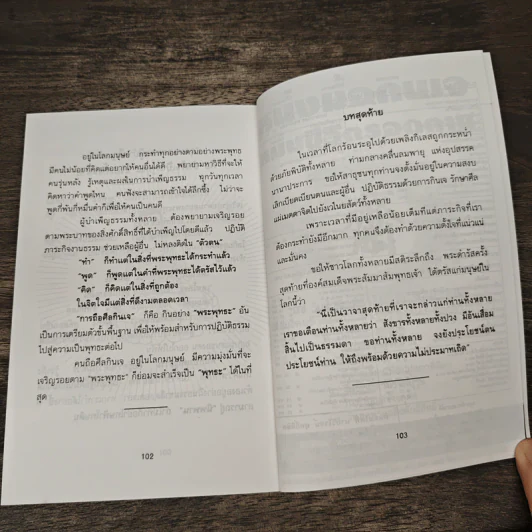 อยู่ในโลกมนุษย์ กระทำทุกอย่างตามอย่างพระพุทธ
มีคนไม่น้อยที่คิดแต่อยากให้คนอื่นได้ดี พยายามหาวิธีที่จะให้
คนรุ่นหลัง รู้เหตุและผลในการบำเพ็ญธรรม ทุกวันทุกเวลา
คิดหาว่าคำพูดไหน คนฟังจะสามารถเข้าใจได้ลึกซึ้ง ไม่ว่าจะ
พูดกี่พันกี่หมื่นคำก็เพื่อให้คนเป็นคนดี
ผู้บำเพ็ญธรรมทั้งหลาย ต้องพยายามเจริญรอย
ตามพระบาทของสิ่งศักดิ์สิทธิ์ที่ได้บำเพ็ญไปโดยดีแล้ว ปฏิบัติ
ภาระกิจงานธรรม ช่วยเหลือผู้อื่น ไม่หลงติดใน "ตัวตน"
"ทำ" ก็ทำแต่ในสิ่งที่พระพุทธะได้กระทำแล้ว
"พูด" ก็พูดแต่ในคำที่พระพุทธะได้ตรัสไว้แล้ว
"คิด" ก็คิดแต่ในสิ่งที่ถูกต้อง
ในจิตใจมีแต่สิ่งที่ดีงามตลอดเวลา
"การถือศีลกินเจ" ก็คือ กินอย่าง "พระพุทธะ" อัน
เป็นการเตรียมตัวขั้นพื้นฐาน เพื่อให้พร้อมสำหรับการปฏิบัติธรรม
ไปสู่ความเป็นพุทธะต่อไป
คนถือศีลกินเจ อยู่ในโลกมนุษย์ มีความมุ่งมั่นที่จะ
เจริญรอยตาม "พระพุทธะ" ก็ย่อมจะสำเร็จเป็น "พุทธะ" ได้ในที่
สุด
102
บทสุดท้าย
ในเวลาที่โลกร้อนระอุไปด้วยเพลิงกิเลสถูกกระหน่ำ
ด้วยภัยพิบัติทั้งหลาย ท่ามกลางคลื่นลมพายุ แห่งอุปสรรค
นานาประการ ขอให้สาธุชนทุกท่านจงตั้งมั่นอยู่ในความสงบ
เลิกเบียดเบียนตนและผู้อื่น ปฏิบัติธรรมด้วยการกินเจ รักษาศีล
แผ่เมตตาจิตไปยังเวไนยสัตว์ทั้งหลาย
เพราะเวลาที่มีอยู่เหลือน้อยเต็มทีแต่ภาระกิจที่เรา
ต้องกระทำยังมีอีกมาก ทุกคนจึงต้องทำด้วยความตั้งใจที่แน่วแน่
และมั่นคง
ขอให้ชาวโลกทั้งหลายมีสติระลึกถึง พระดำรัสครั้ง
สุดท้ายที่องค์สมเด็จพระสัมมาสัมพุทธเจ้า ได้ตรัสแก่มนุษย์ใน
โลกนี้ว่า
"นี่เป็นวาจาสุดท้ายที่เราจะกล่าวแก่ท่านทั้งหลาย
เราขอเตือนท่านทั้งหลายว่า สังขารทั้งหลายทั้งปวง มีอันเสื่อม
สิ้นไปเป็นธรรมดา ขอท่านทั้งหลาย จงยังประโยชน์ตน
ประโยชน์ท่าน ให้ถึงพร้อมด้วยความไม่ประมาทเถิด"
103